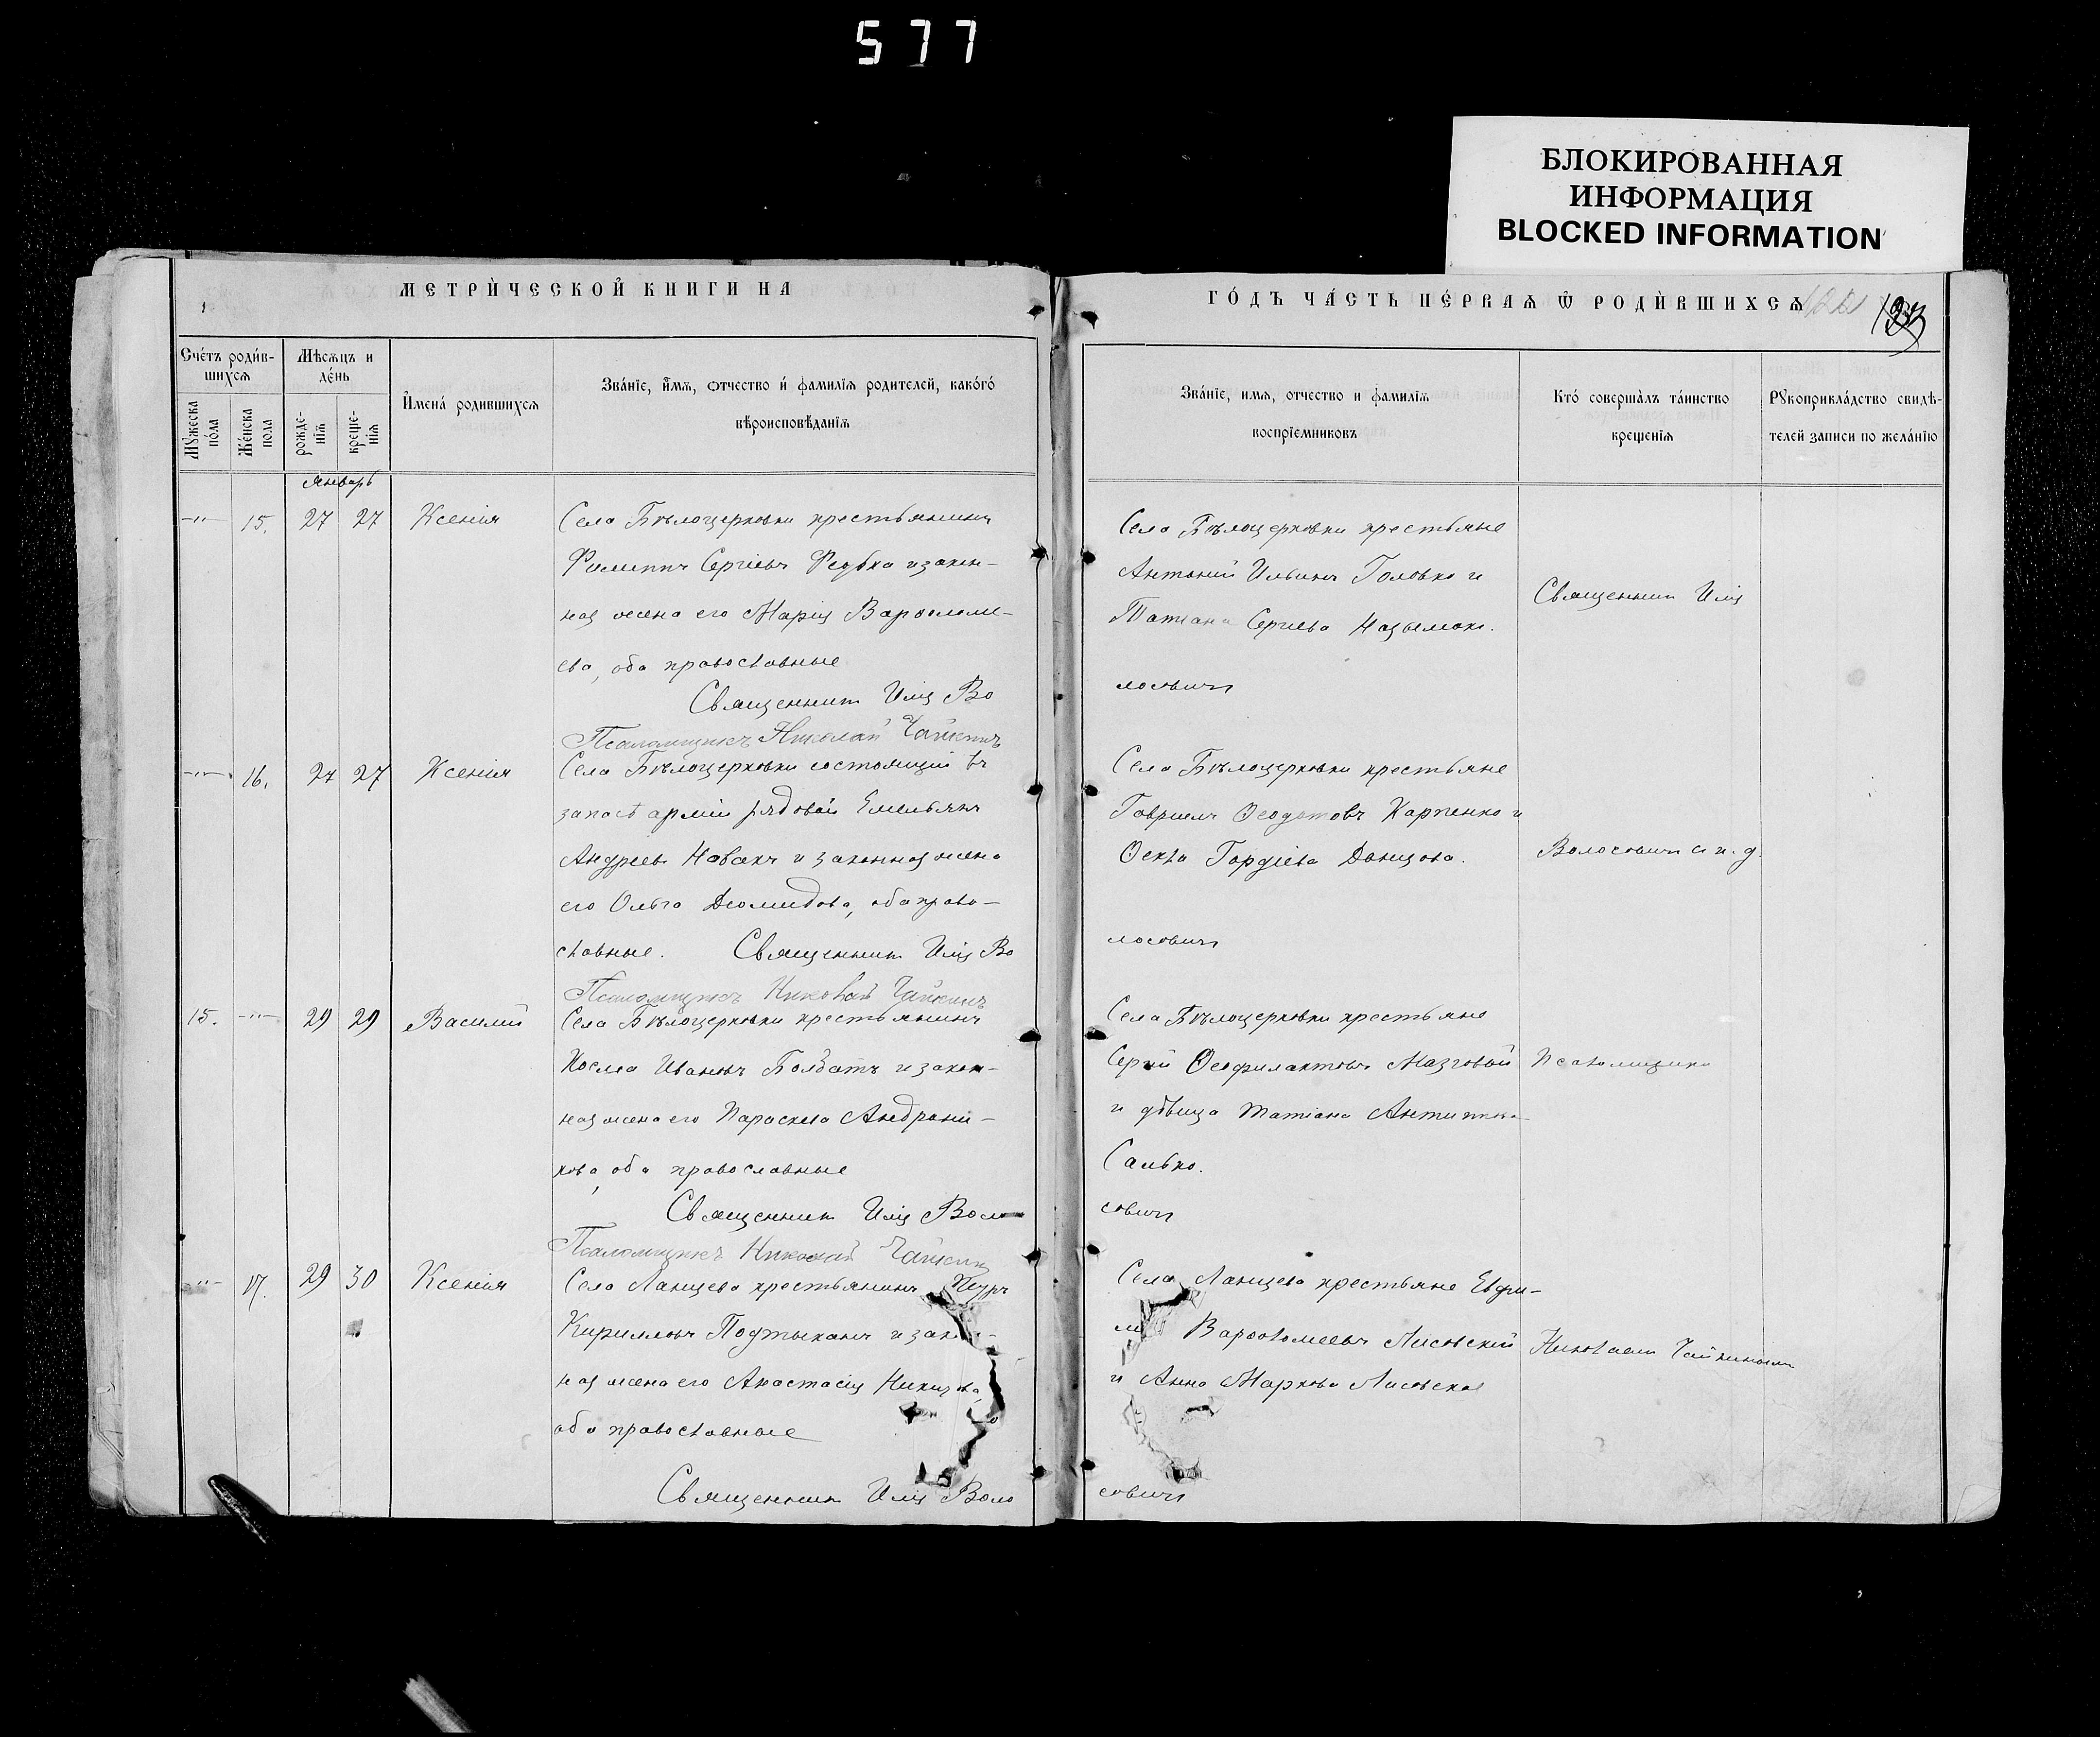 577
БЛОКИРОВАННАЯ
ИНФОРМАЦИЯ
BLOCKED INFORMATION
МЕТРИ́ЧЕСКОЙ КНИГИ НА
ГО́ДЪ ЧА́СТЬ ПЕ́РВАѦ Ѿ РОДИ́ВШИХСѦ
Сче́тъ роди́в-
шихсѧ
Мѣсѧцъ и
де́нь
Мꙋжеска
по́ла
Же́нска
пола
рожде-
нїѧ
креще-
нїѧ
И҆мена́ родившихсѧ
Зва́нїе, и҆́мѧ, ѻтчество и́ фамилїѧ родителей, како́гѡ́
вѣроисповѣданїѧ
Зва́нїе, имѧ, отчество и фамилїѧ
воспрїемниковъ
Кто́ соверша́лъ та́инство
крещенїѧ
Рꙋкоприкла́дство свидѣ-
телей записи по жела́нїю
Январь
-"- 15. 27 27 Ксенія
Села Бѣлоцерковки крестьянинъ
Филиппъ Сергіевъ и закон-
ная жена его Марія Варѳоломе-
ева, оба православные
Священникъ Илія Во
Псаломщикъ Николай Чайкинъ
Села Бѣлоцерковки крестьяне
Антоній Ильинъ Головко и
Татіана Сергіева
лосовичъ
Священникъ Илія
-"- 16. 27 27 Ксенія
Села Бѣлоцерковки состоящій въ
запасѣ арміи рядовой Емельянъ
Андреевъ Новакъ и законная жена
его Ольга Діомидова, оба право-
славные. Священникъ Илія Во
Псаломщикъ Николай Чайкинъ
Села Бѣлоцерковки крестьяне
Гавріилъ Ѳеодотовъ Карпенко и
Ѳекла Гордіева Донцова.
лосовичъ
Волосовичъ с п. д.
15. -"- 29 29 Василій
Села Бѣлоцерковки крестьянинъ
Косма Ивановъ Болбатъ и закон-
ная жена его Параскева Андрони-
кова, оба православные
Священникъ Илія Воло
Псаломщикъ Николай Чайкинъ
Села Бѣлоцерковки крестьяне
Сергій Ѳеофилактовъ Мазговой
и дѣвица Татіана Антипова
Салько.
совичъ
Псаломщикомъ
-"- 17. 29 30 Ксенія
Села Ланцева крестьянинъ Петръ
Кирилловъ Подтыканъ и закон-
ная жена его Анастасія
оба православные
Священникъ Илія Воло
Села Ланцева крестьяне Евфи-
мій Варѳоломеевъ Лисовскій
и Анна Маркова Лисовская
совичъ
Николаемъ Чайкинымъ